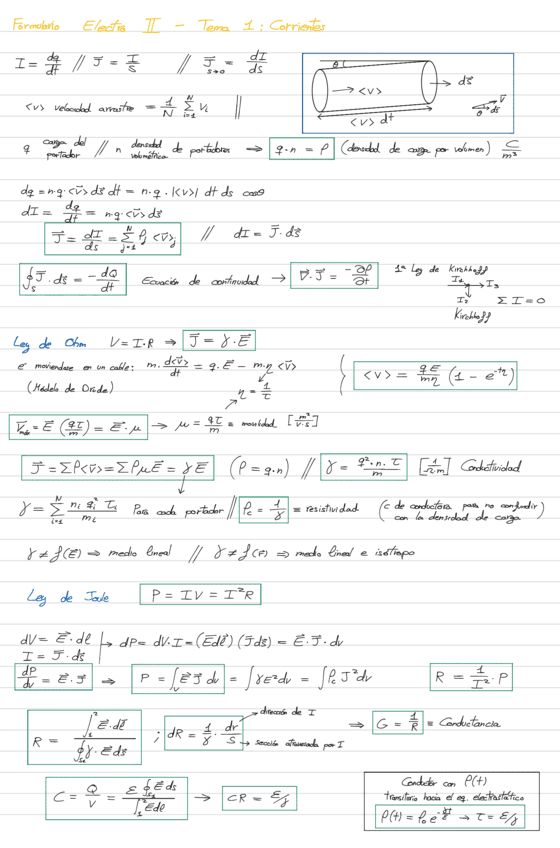 Formulario Electro II - Tema 1: Corrientes
I = dq/dt // J⃗ = I/S // J⃗ s→0 = dI/ds
θ <v> ds⃗
<v> dt
v⃗ θ ds⃗
<v> velocidad arrastre = 1/N Σ_{i=1}^{N} v_i //
q carga del portador // n densidad volumétrica de portadores ⇒ q·n = ρ (densidad de carga por volumen) C/m³
dq = n·q·<v⃗> ds⃗ dt = n·q·|<v>| dt ds cosθ
dI = dq/dt = n·q·<v⃗> ds⃗
J⃗ = dI/ds = Σ_{j=1}^{N} ρ_j <v⃗>_j // dI = J⃗·ds⃗
∮_S J⃗·ds⃗ = -dQ/dt Ecuación de continuidad → ∇⃗·J⃗ = -∂ρ/∂t 1ª Ley de Kirchhoff
I₂ I₃ Σ I = 0
Kirchhoff
Ley de Ohm V = I·R ⇒ J⃗ = γ·E⃗
e⁻ moviendose en un cable: m·d<v⃗>/dt = q·E⃗ - m·η<v⃗> { <v> = qE/mη (1 - e^{-tη})
(Modelo de Drude) η = 1/τ
= E⃗ (qτ/m) = E⃗·μ → μ = qτ/m ≡ movilidad [m²/V·s]
J⃗ = Σρ<v⃗> = ΣρμE⃗ = γE⃗ (ρ = q·n) // γ = q²·n·τ/m [1/Ω·m] Conductividad
γ = Σ_{i=1}^{N} n_i q_i² τ_i/m_i Para cada portador // ρ_c = 1/γ ≡ resistividad (c de conductora para no confundir con la densidad de carga)
γ ≠ f(E⃗) ⇒ medio lineal // γ ≠ f(r) ⇒ medio lineal e isótropo
Ley de Joule P = IV = I²R
dV = E⃗·dl⃗
I = J⃗·ds⃗ → dP = dV·I = (E⃗dl⃗)(J⃗ds⃗) = E⃗·J⃗·dv
dP/dv = E⃗·J⃗ ⇒ P = ∫_V E⃗J⃗ dv = ∫γE²dv = ∫ρ_c J²dv R = 1/I²·P
R = ∫₁² E⃗·dl⃗ / ∮_{S₁} γ·E⃗ds⃗ ; dR = 1/γ · dr/S → dirección de I → sección atravesada por I ⇒ G = 1/R ≡ Conductancia
C = Q/V = ε∮_{S₁} E⃗ds / ∫₁² E⃗dl → CR = ε/γ
Conductor con ρ(t)
transitorio hacia el eq. electrostático
ρ(t) = ρ₀ e^{-γt/ε} → τ = ε/γ